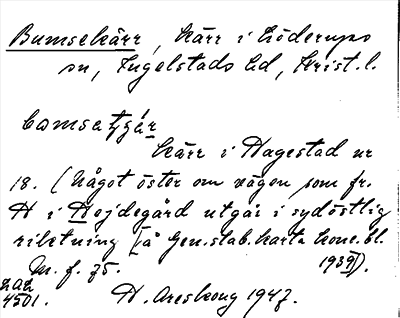 Bumsekärr, kärr i Löderups
sn, Ingelstads hd, Krist. l.
kärr i Hagestad nr
18. (Något öster om vägen som fr.
H i Hejdegård utgår i sydöstlig
riktning på Gen.stab.karta konc.bl.
M. f. 75. 1939).
LAL
4501. H. Areskoug 1947.